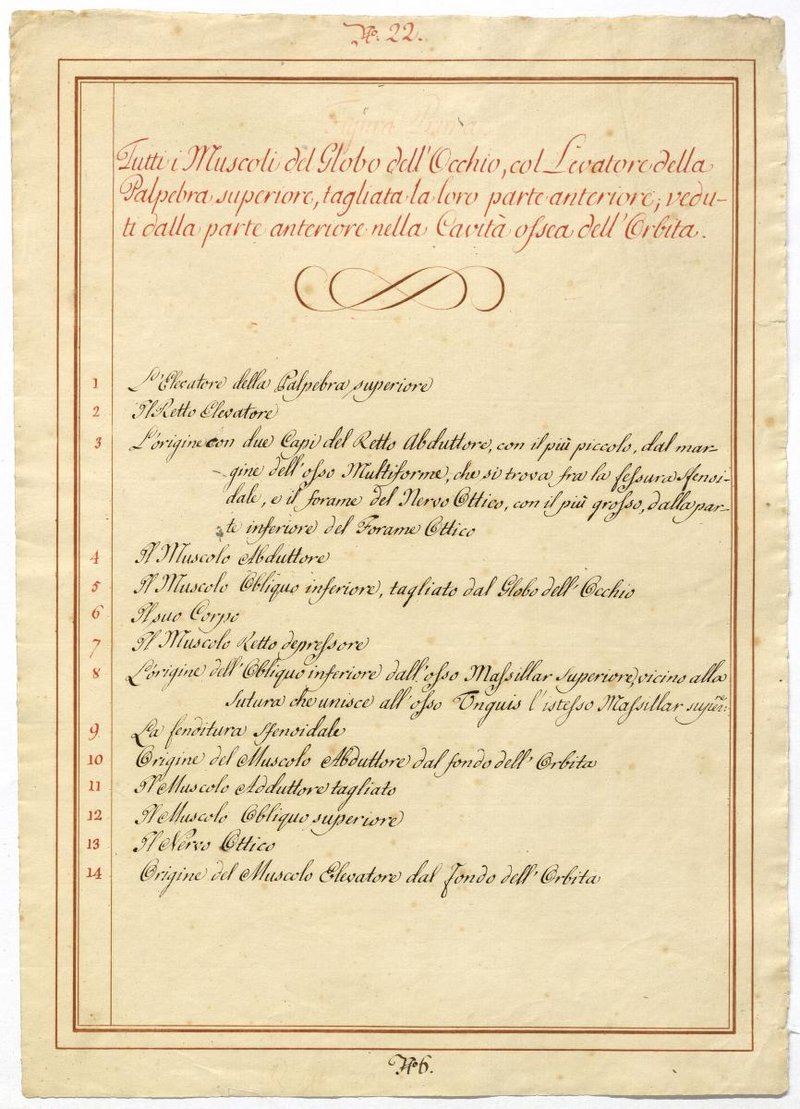 No. 22.
Figura Prima
Tutti i Muscoli del Globo dell'Occhio, col Levatore della
Palpebra superiore, tagliata la loro parte anteriore; vedu-
ti dalla parte anteriore nella Cavità ossea dell'Orbita.
1 L'Elevatore della Palpebra superiore
2 Il Retto Elevatore
3 L'origine con due Capi del Retto Abduttore, con il più piccolo, dal mar-
gine dell'osso Multiforme, che si trova fra la fessura sfenoi-
dale, e il forame del Nervo Ottico, con il più grosso, dalla par-
te inferiore del Forame Ottico
4 Il Muscolo Abduttore
5 Il Muscolo Obliquo inferiore, tagliato dal Globo dell'Occhio
6 Il suo Corpo
7 Il Muscolo Retto depressore
8 L'origine dell'Obliquo inferiore dall'osso Massillar Superiore, vicino alla
Sutura che unisce all'osso Unguis l'istesso Massillar superre:
9 La fenditura sfenoidale
10 Origine del Muscolo Abduttore dal fondo dell'Orbita
11 Il Muscolo Adduttore tagliato
12 Il Muscolo Obliquo superiore
13 Il Nervo Ottico
14 Origine del Muscolo Elevatore dal Fondo dell'Orbita
No6.